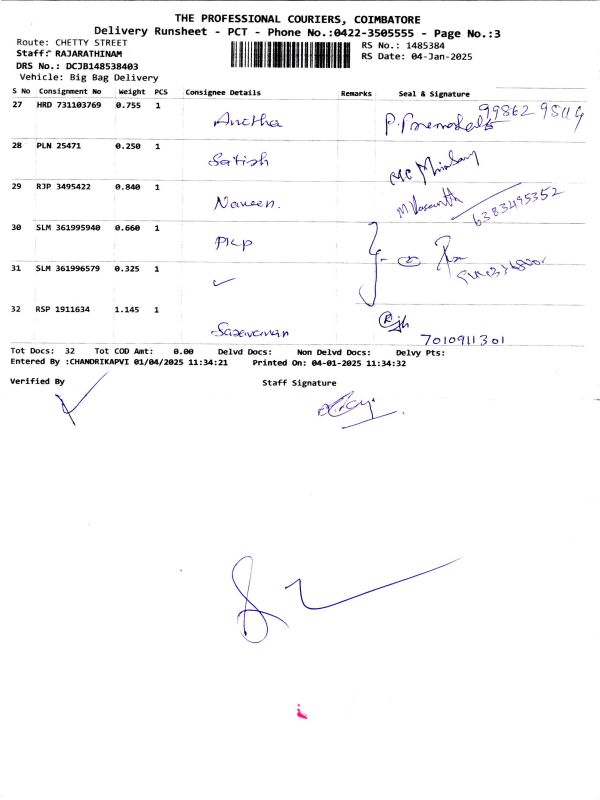 THE PROFESSIONAL COURIERS, COIMBATORE
Delivery Runsheet - PCT - Phone No.:0422-3505555 - Page No.:3
Route: CHETTY STREET
RS No.: 1485384
Staff: RAJARATHINAM
RS Date: 04-Jan-2025
DRS No.: DCJB148538403
Vehicle: Big Bag Delivery
S No Consignment No Weight PCS Consignee Details Remarks Seal & Signature
27 HRD 731103769 0.755 1
Anitha
28 PLN 25471 0.250 1
Satish
29 RJP 3495422 0.840 1
Naveen. 6383495352
30 SLM 361995940 0.660 1
PKP
31 SLM 361996579 0.325 1
✓
32 RSP 1911634 1.145 1
Saravanan 7010911301
Tot Docs: 32 Tot COD Amt: 0.00 Delvd Docs: Non Delvd Docs: Delvy Pts:
Entered By :CHANDRIKAPVI 01/04/2025 11:34:21 Printed On: 04-01-2025 11:34:32
Verified By Staff Signature